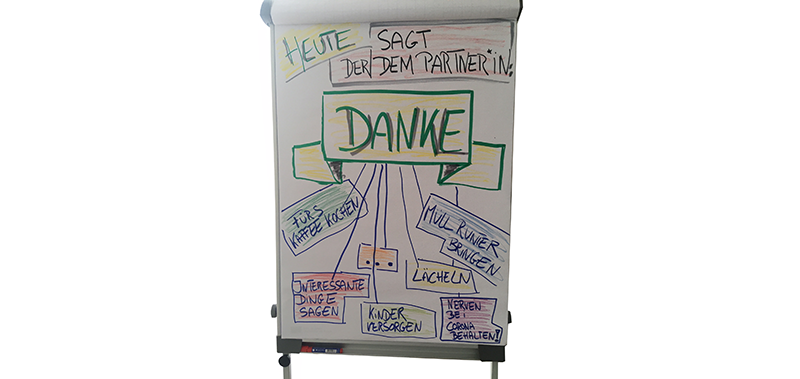 HEUTE SAGT
DER DEM PARTNER*IN:
DANKE
FÜRS
KAFFEE KOCHEN
MÜLL RUNTER
BRINGEN
...
LÄCHELN
INTERESSANTE
DINGE
SAGEN
KINDER
VERSORGEN
NERVEN
BEI
CORONA
BEHALTEN!